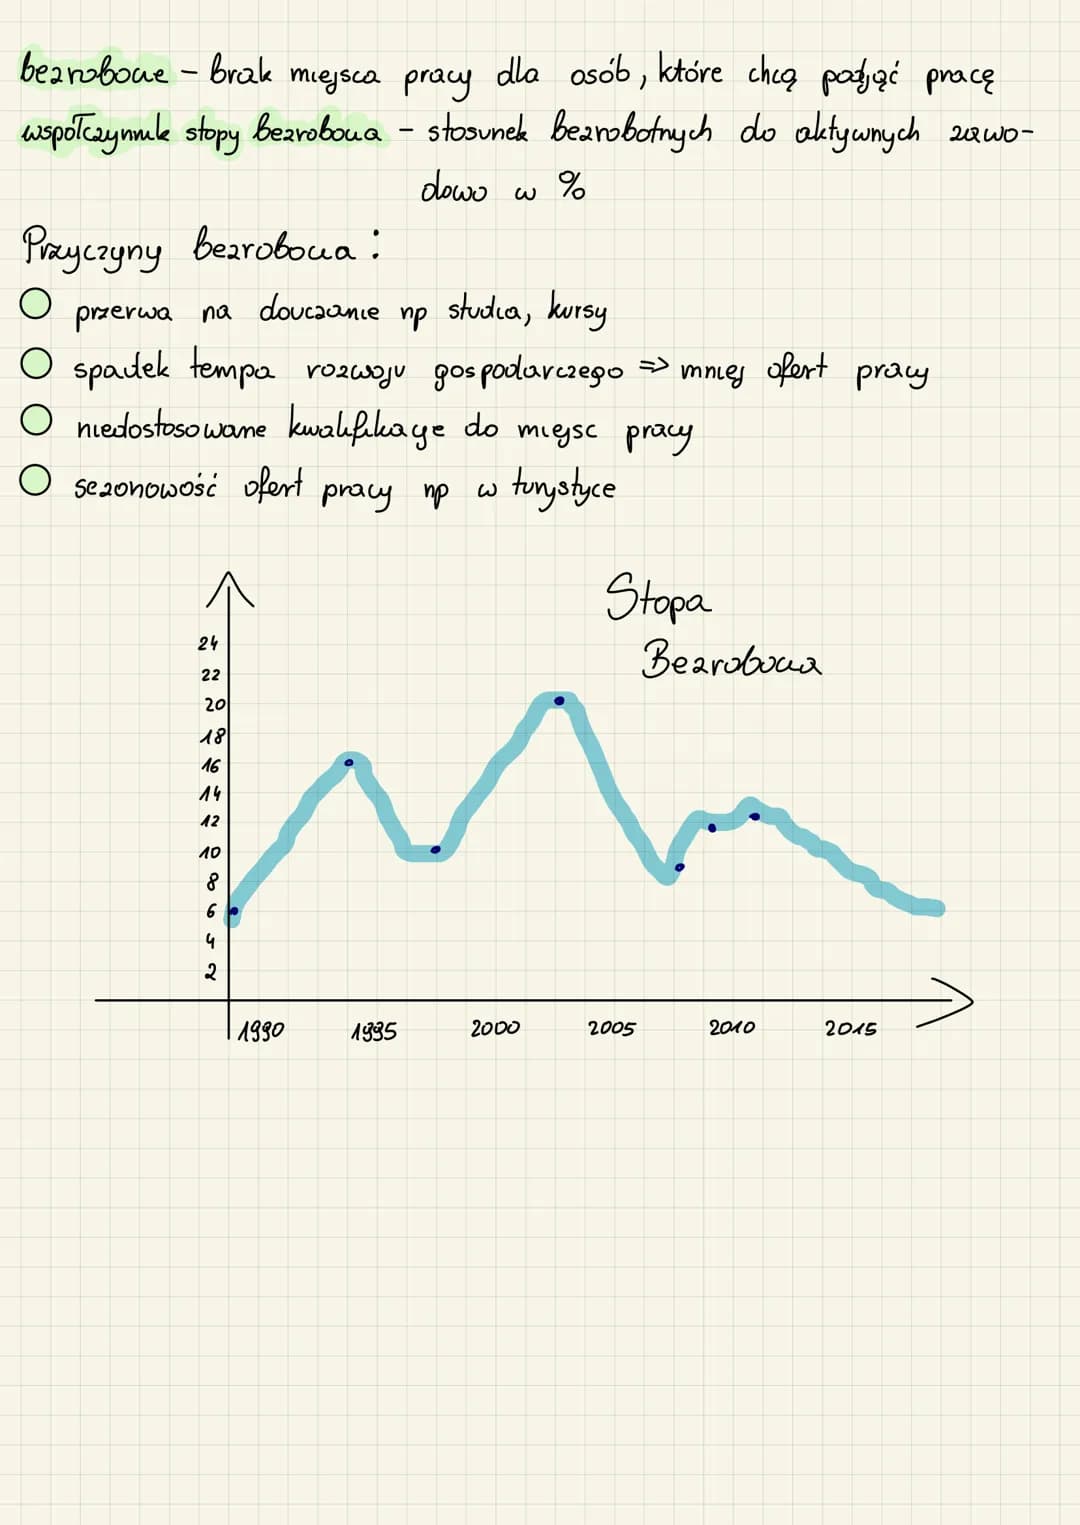 bezrobocie – brak miejsca pracy dla osób, które chcą podjąć pracę
współczynnik stopy bezrobocia – stosunek bezrobotnych do aktywnych zawo-
dowo w %
Przyczyny bezrobocia:
przerwa na douczanie np studia, kursy
spadek tempa rozwoju gospodarczego => mniej ofert pracy
niedostosowane kwalifikacje do miejsc pracy
sezonowość ofert pracy np w turystyce
Stopa
Bezrobocia
24
22
20
18
16
14
12
10
8
6
4
2
1990 1995 2000 2005 2010 2015